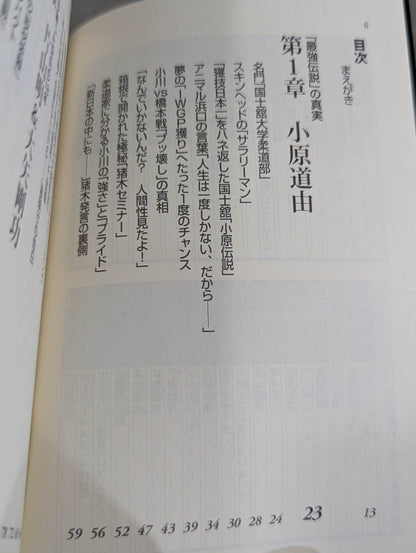 6
目次
まえがき 13
「最強伝説」の真実
第1章 小原道由 23
名門「国士舘大学柔道部」 24
スキンヘッドの「サラリーマン」 28
「寝技日本一」をハネ返した国士舘「小原伝説」 30
アニマル浜口の言葉「人生は一度しかない、だから――」 34
夢の「IWGP獲り」へたった1度のチャンス 39
小川vs橋本戦「ブッ壊し」の真相 43
「なんでいかないんだ? 人間性見たよ!」 47
箱根で開かれた極秘「猪木セミナー」 52
柔道家に分かる小川の「強さ」と「プライド」 56
「新日本の中にも 」猪木発言の裏側 59